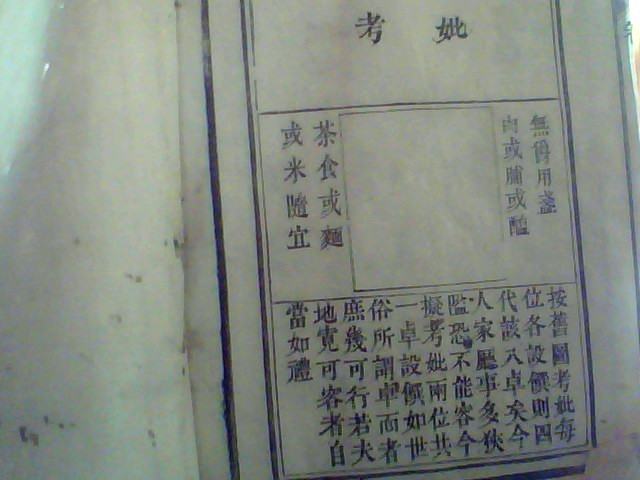 妣
考
無爵用盞
肉或脯或醢
茶食或麵
或米隨宜
按舊圖考妣每
位各設饌則四
代該八卓矣今
人家廳事多狹
隘恐不能容今
擬考妣兩位共
一卓設饌如世
俗所謂卓面者
庶幾可行若夫
地寬可容者自
當如禮